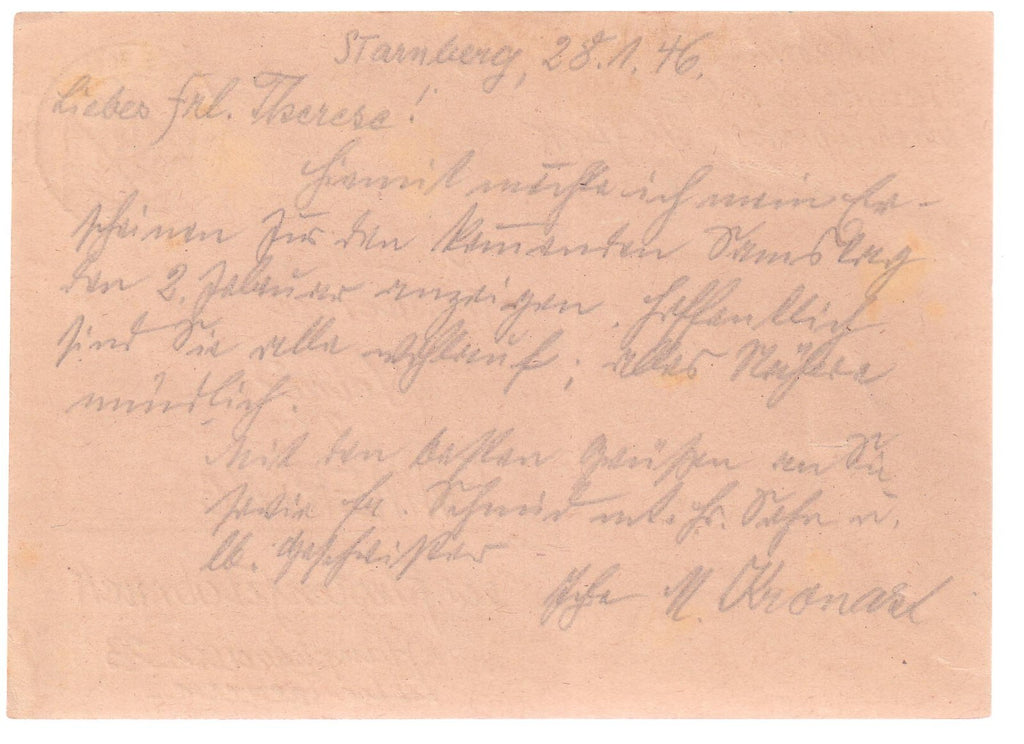 Starnberg, 28.1.46.
Liebes Frl. Therese!
Hiermit möchte ich mein Er-
scheinen für den kommenden Samstag
den 2. Februar anzeigen. Hoffentlich
sind Sie alle wohlauf; alles Nähere
mündlich.
Mit den besten Grüßen an Sie
sowie Fr. Schmid m. Hr. Sohn u.
lb. Geschwister
Ihre M.